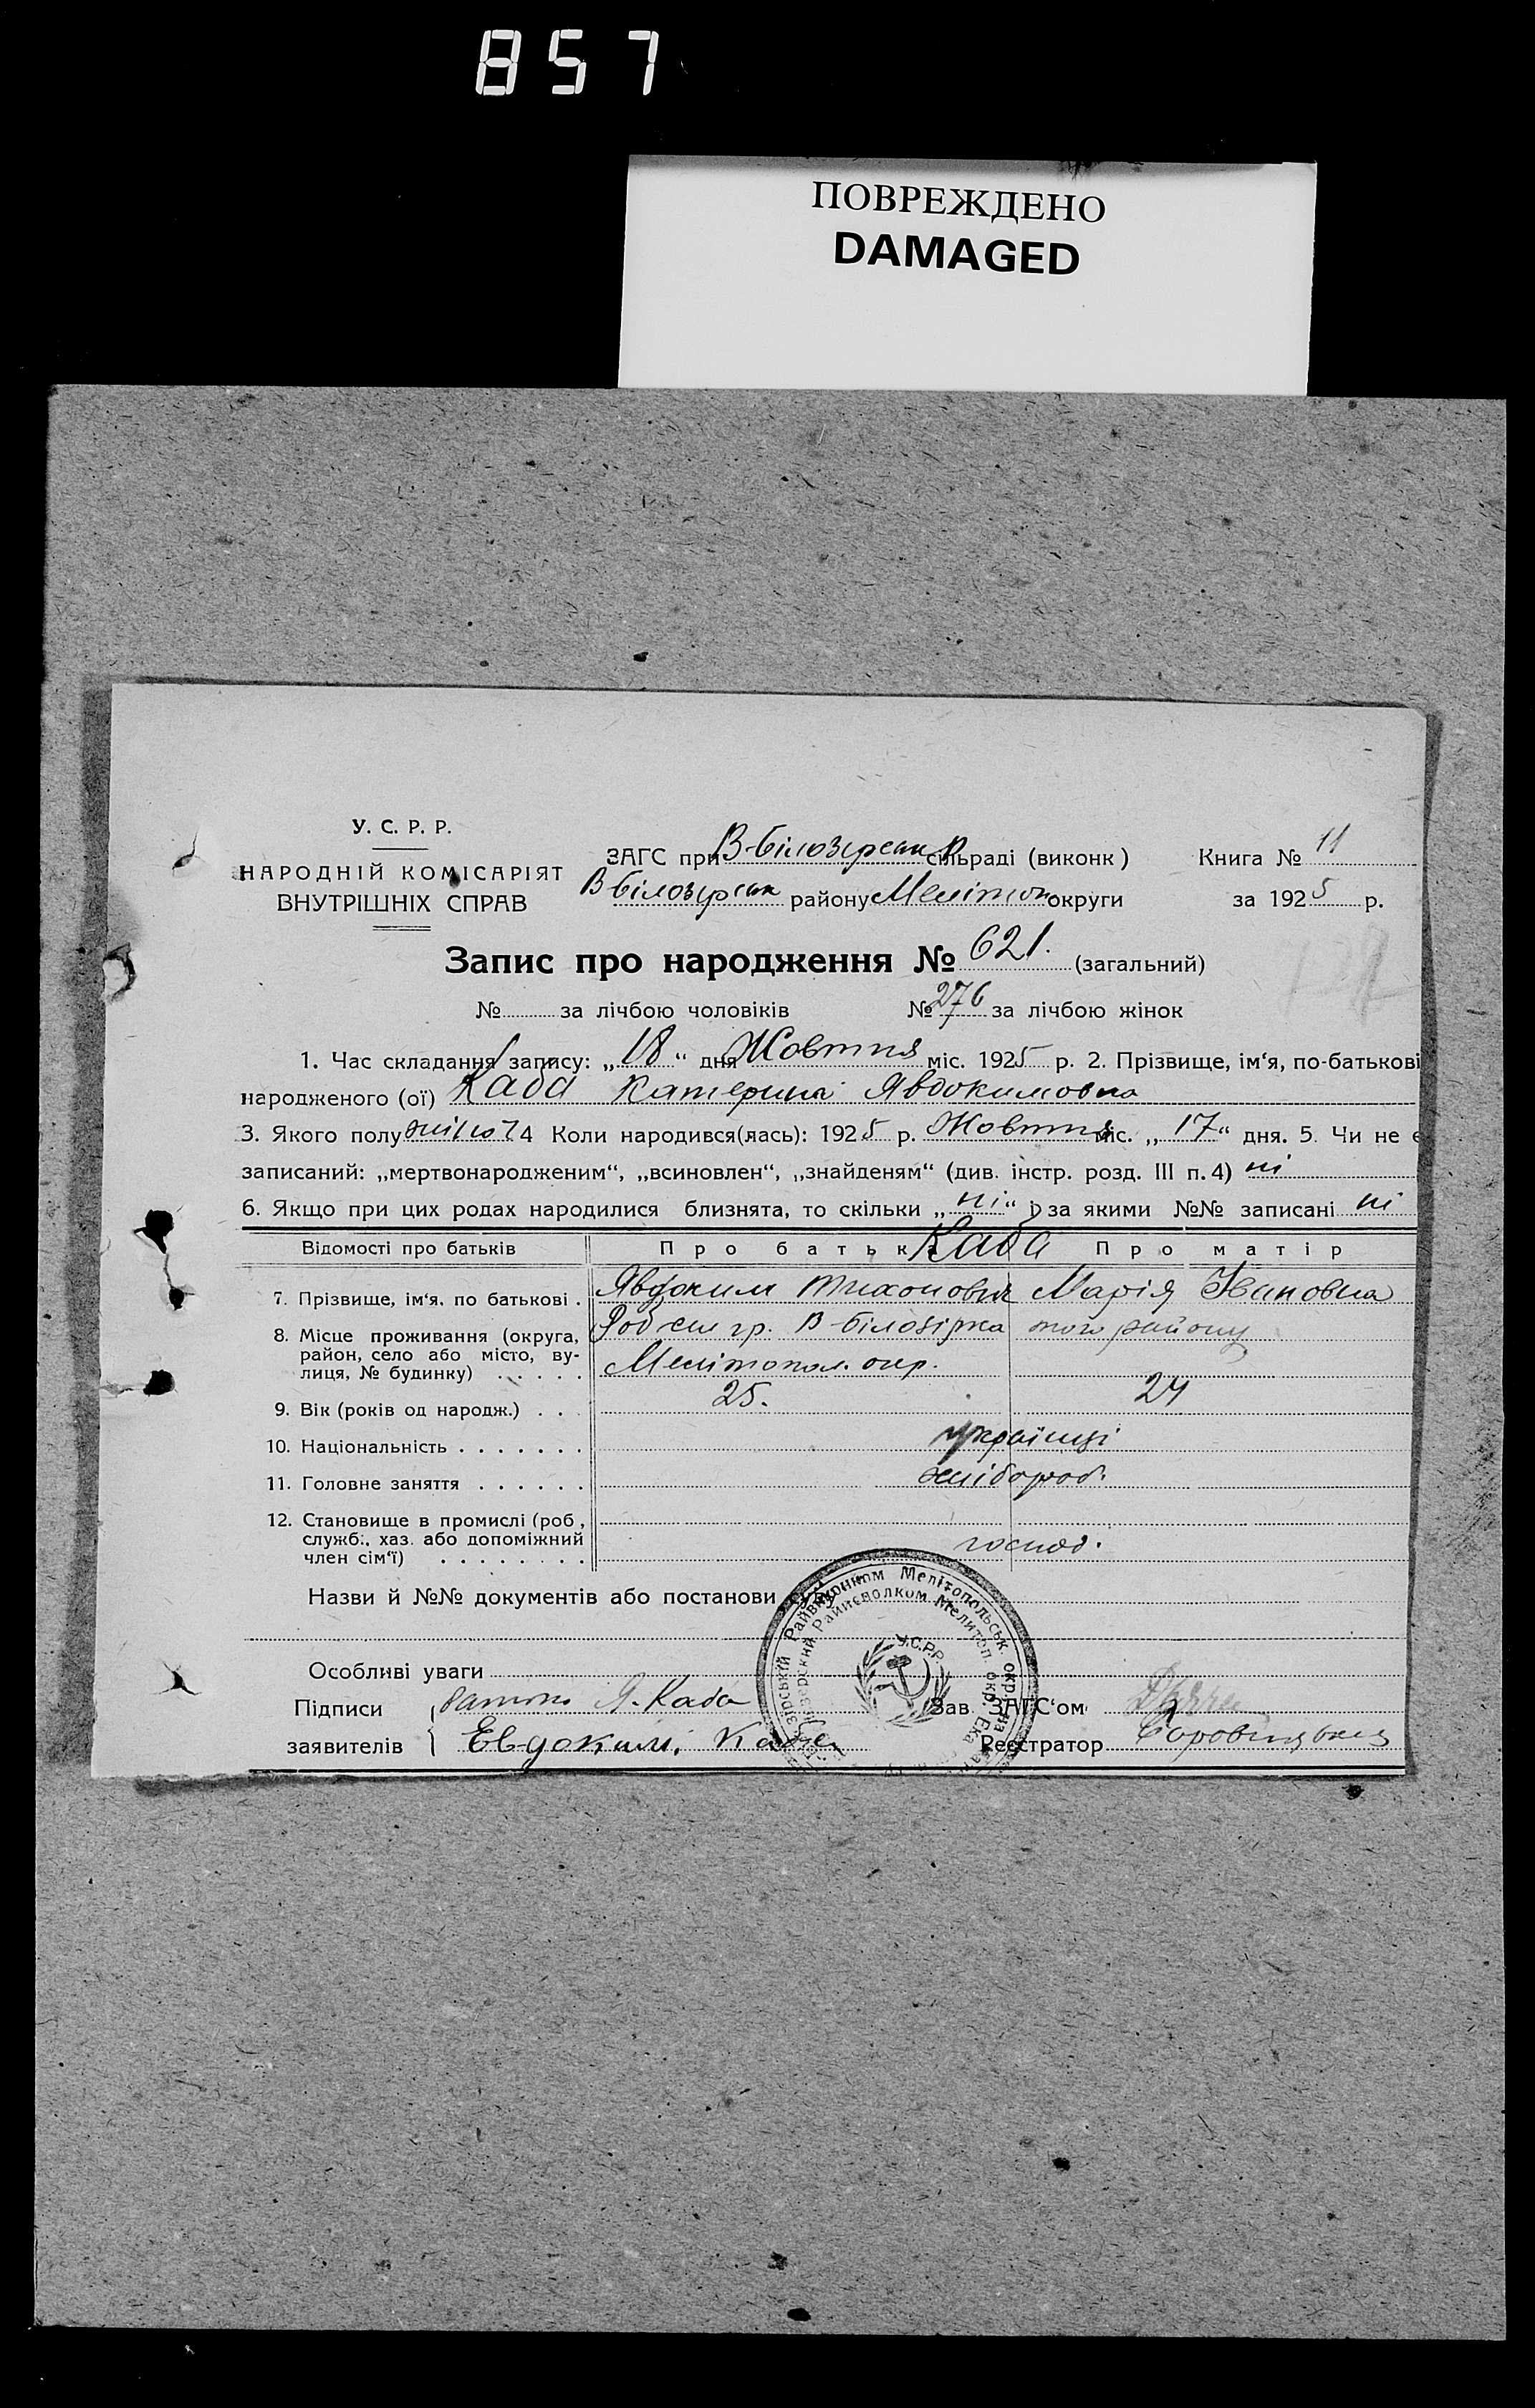 857
ПОВРЕЖДЕНО
DAMAGED
У. С. Р. Р.
НАРОДНІЙ КОМІСАРІЯТ
ВНУТРІШНІХ СПРАВ
ЗАГС при В-білозерськ сільраді (виконк)
В білозерськ району Мелітоп округи
Книга № 11
за 1925 р.
Запис про народження № 621. (загальний)
№ за лічбою чоловіків № 276 за лічбою жінок
1. Час складання запису: „18“ дня Жовтня міс. 1925 р. 2. Прізвище, ім‘я, по-батькові
народженого (ої) Каба Катерина Явдокимовна
3. Якого полу жіноч 4 Коли народився(лась): 1925 р. Жовтня міс. „17“ дня. 5. Чи не є
записаний: „мертвонародженим“, „всиновлен“, „знайденям“ (див. інстр. розд. III п. 4) ні
6. Якщо при цих родах народилися близнята, то скільки „ні“ і за якими №№ записані ні
Відомості про батьків Про батьк Каба Про матір
7. Прізвище, ім‘я. по батькові . Явдоким Тихонович Марія Івановна
8. Місце проживання (округа, район, село або місто, вулиця, № будинку) . . . . . В-білозірка того району
Мелітопол. окр.
9. Вік (років од народж.) . . . 25. 24
10. Національність . . . . . . . українці
11. Головне заняття . . . . . . хлібороб.
12. Становище в промислі (роб, служб., хаз. або допоміжний член сім‘ї) . . . . . . . . господ.
Назви й №№ документів або постанови суду
Особливі уваги
Підписи заявителів { батько Я. Каба
Евдоким. Каба
Зав. ЗАГС‘ом
Реєстратор
Райвиконком Мелітопольськ. округи
Райисполком. Мелитоп. окр. Ека
У.С.Р.Р.